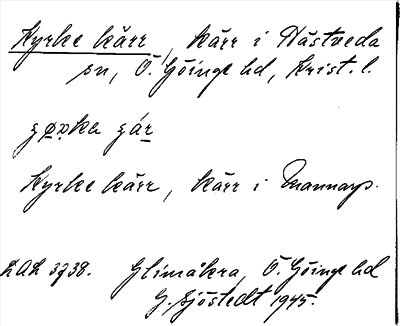 Kyrke kärr, kärr i Hästveda
sn, Ö. Göinge hd, Krist. l.
Kyrke kärr, kärr i Mannarp.
LAL 3938. Glimåkra, Ö. Göinge hd
G. Sjöstedt 1945.